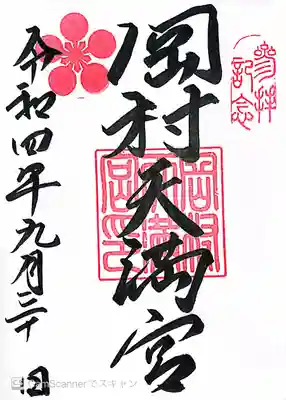 参拝
記念
岡村天満宮
岡村
天満
宮印
令和四年九月三十日
CamScannerでスキャン